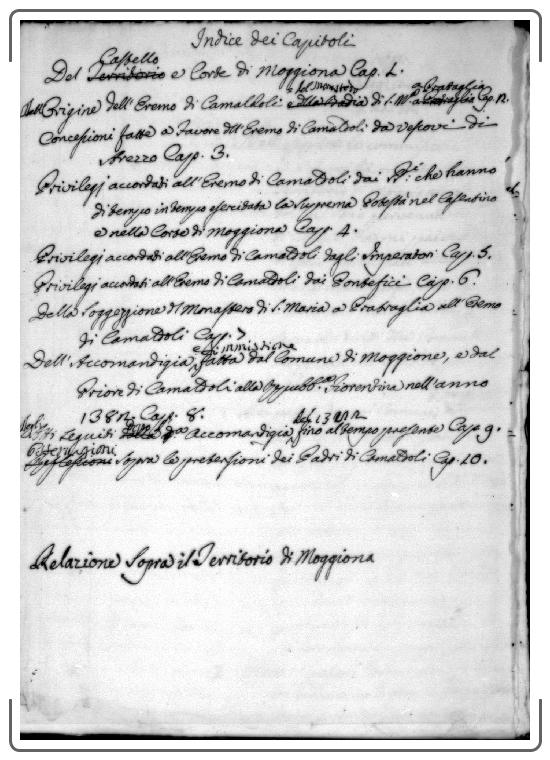 Indice dei Capitoli
Castello
Del Territorio e Corte di Moggiona Cap. 1.
del Monastero a Prataglia
Dell'Origine dell'Eremo di Camaldoli e della Badia di S. Mᵃ a Prataglia Cap. 2.
Concessioni fatte a favore dell'Eremo di Camaldoli da Vescovi di
Arezzo Cap. 3.
Privilegj accordati all'Eremo di Camaldoli dai che hanno
di tempo in tempo esercitata la Suprema Potestà nel Casentino
e nella Corte di Moggiona Cap. 4.
Privilegj accordati all'Eremo di Camaldoli dagli Imperatori Cap. 5.
Privilegj accordati all'Eremo di Camaldoli dai Pontefici Cap. 6.
Della Soggezzione del Monastero di S. Maria a Prataglia all'Eremo
di Camaldoli Cap. 7
Dell'Accomandigia fatta dal Comune di Moggione, e dal
Priore di Camaldoli alla Repubb.ᶜᵃ Fiorentina nell'anno
1382. Cap. 8.
del 1382
Atti seguiti dᵃ Accomandigia fino al tempo presente Cap. 9.
Osservazioni
Riflessioni Sopra le pretensioni dei Padri di Camaldoli Cap. 10.
Relazione Sopra il Territorio di Moggiona